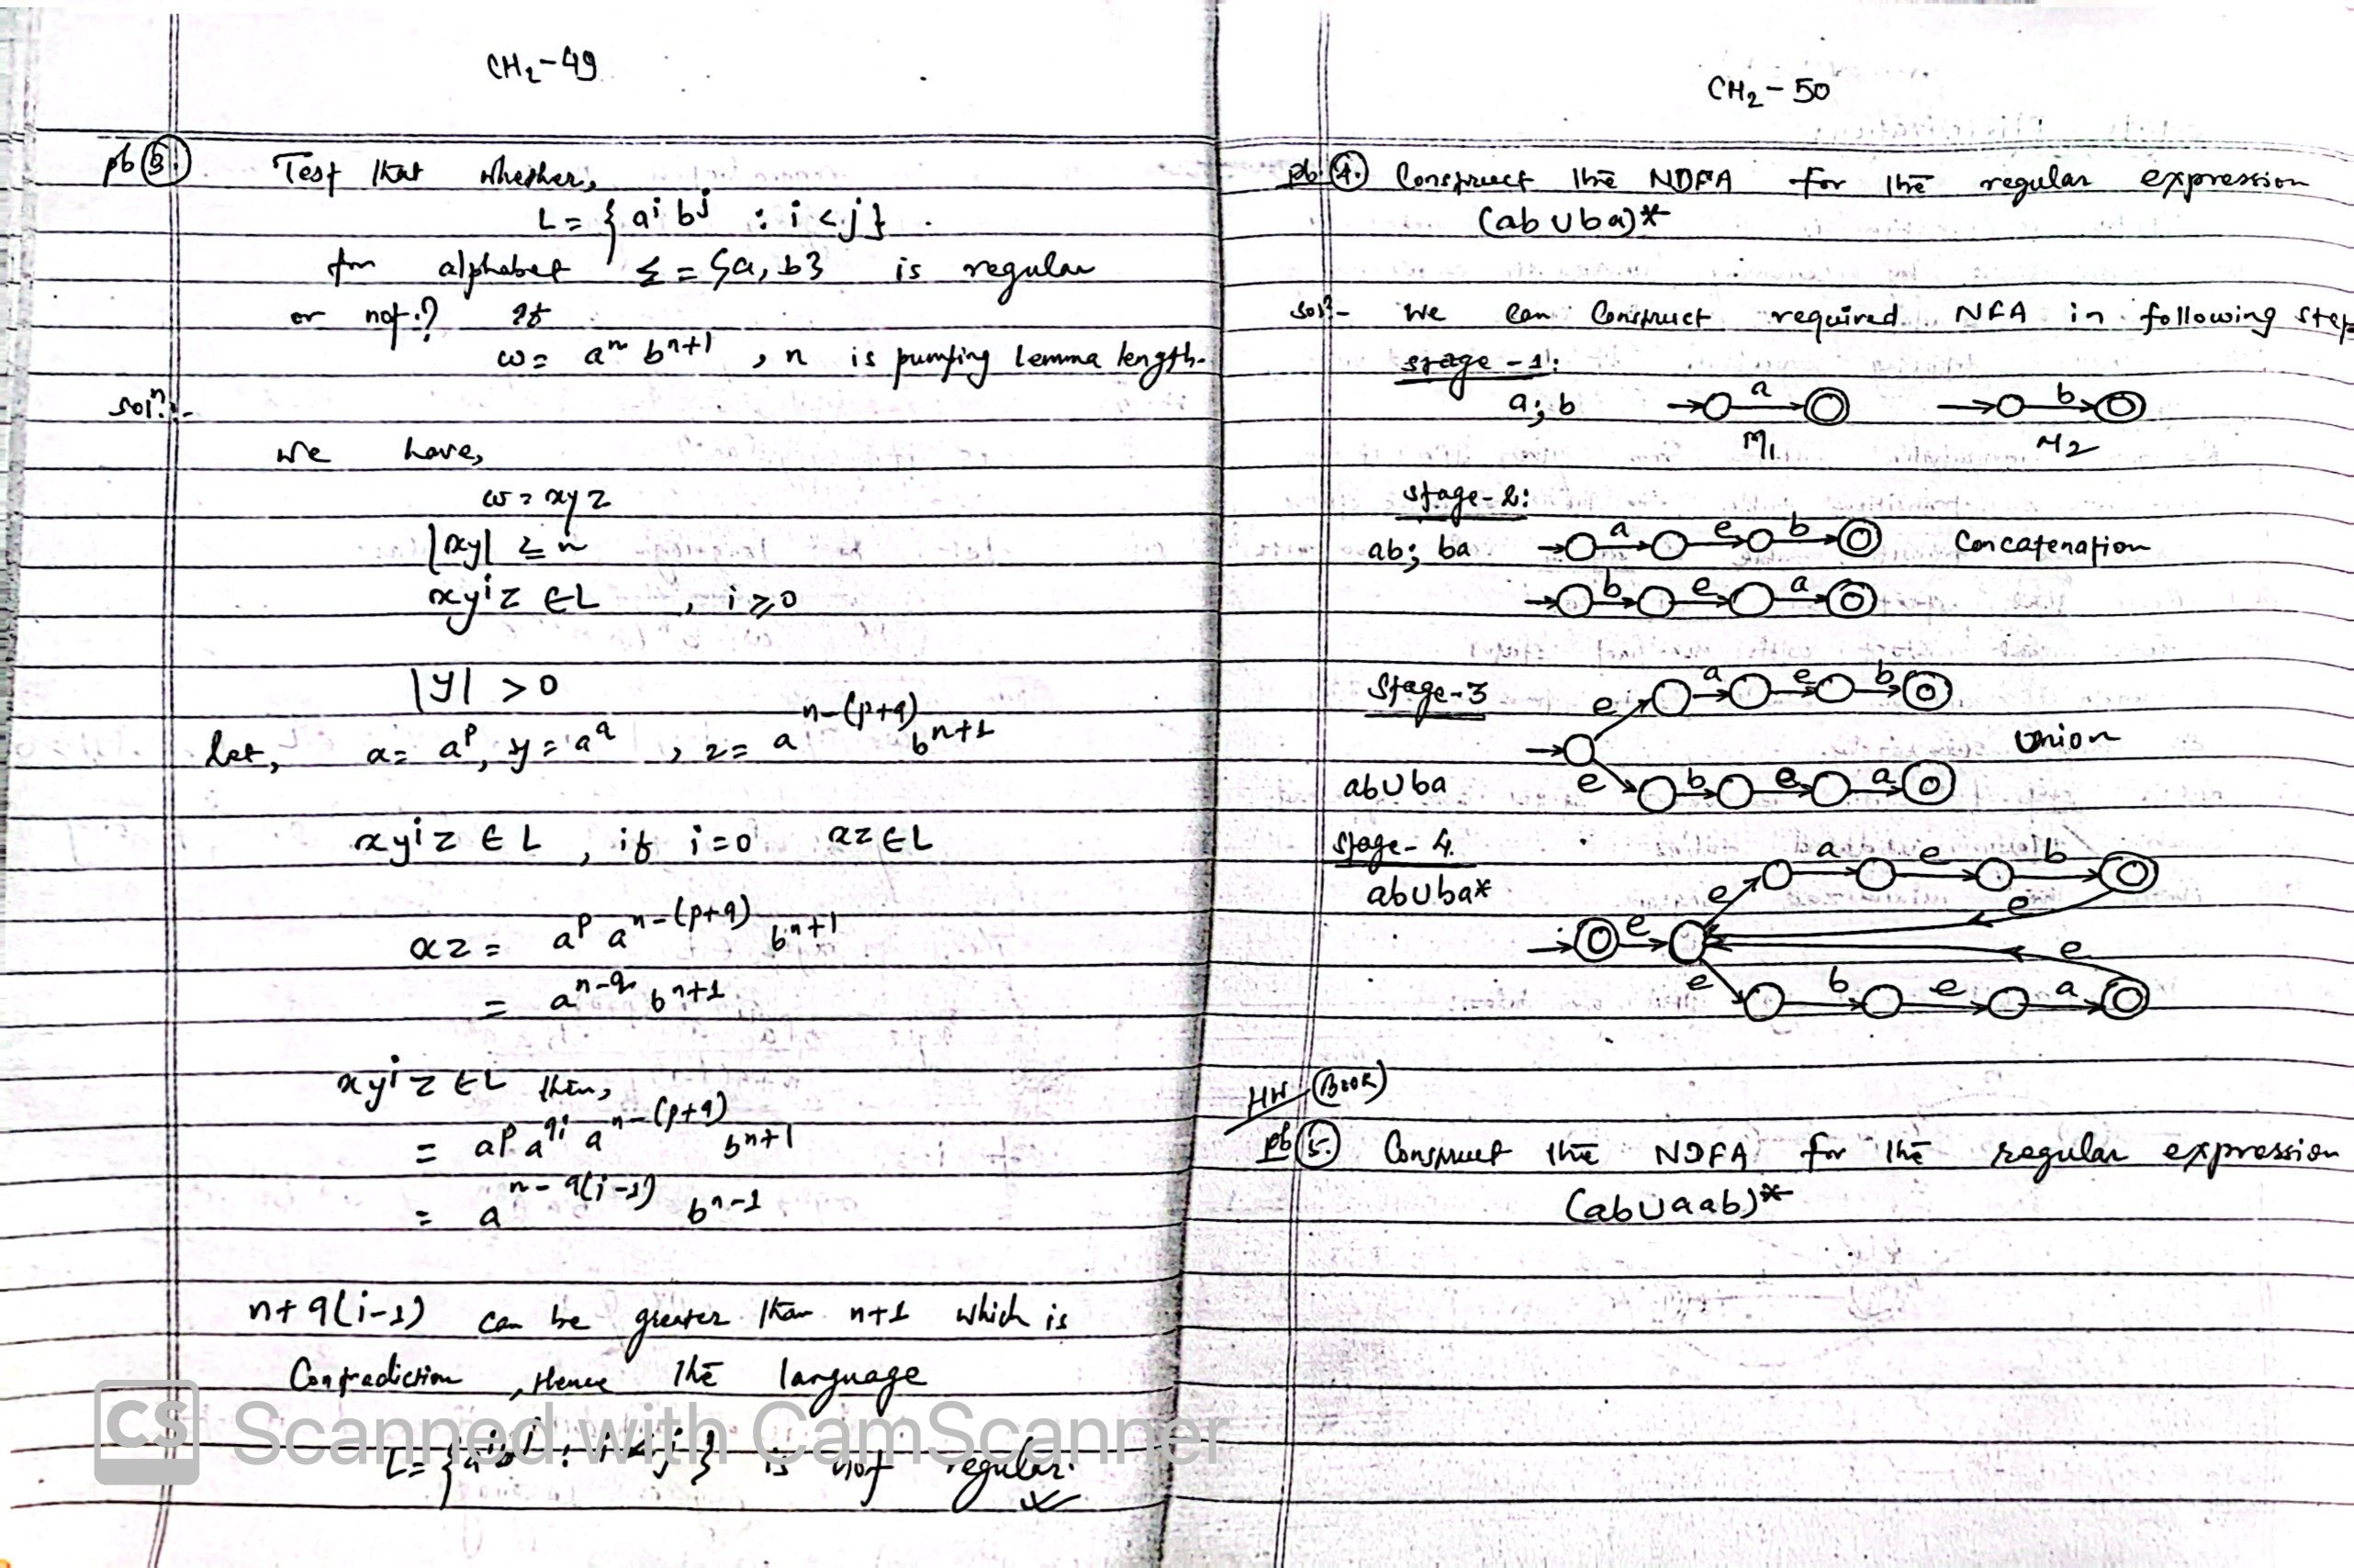 CH₂-49
pb ③. Test that whether,
L = { aⁱ bʲ : i < j } .
for alphabet Σ = {a, b} is regular
or not.? If
ω = aⁿ bⁿ⁺¹ , n is pumping lemma length.
solⁿ:-
we have,
ω = xyz
|xy| ≤ n
xyⁱz ∈ L , i ≥ 0
|y| > 0
let, x = aᵖ, y = a^q , z = a^n-(p+q) bⁿ⁺¹
xyⁱz ∈ L , if i=0 xz ∈ L
xz = aᵖ a^n-(p+q) bⁿ⁺¹
= a^n-q bⁿ⁺¹
xyⁱz ∈ L then,
= aᵖ a^qi a^n-(p+q) bⁿ⁺¹
= a^n-q(i-1) bⁿ⁻¹
n+q(i-1) can be greater than n+1 which is
Contradiction , Hence the language
L = { aⁱ bʲ : i < j } is not regular.
CS Scanned with CamScanner
CH₂-50
pb ④. Construct the NDFA for the regular expression
(ab ∪ ba)*
solⁿ:- We can Construct required NFA in following step
stage-1:
a; b a b
M₁ M₂
stage-2:
ab; ba a e b Concatenation
b e a
Stage-3 e a e b
Union
ab∪ba e b e a
Stage-4. a e b
ab∪ba* e e
e e
e b e a
HW (Book)
pb ⑤. Construct the NDFA for the regular expression
(ab∪aab)*